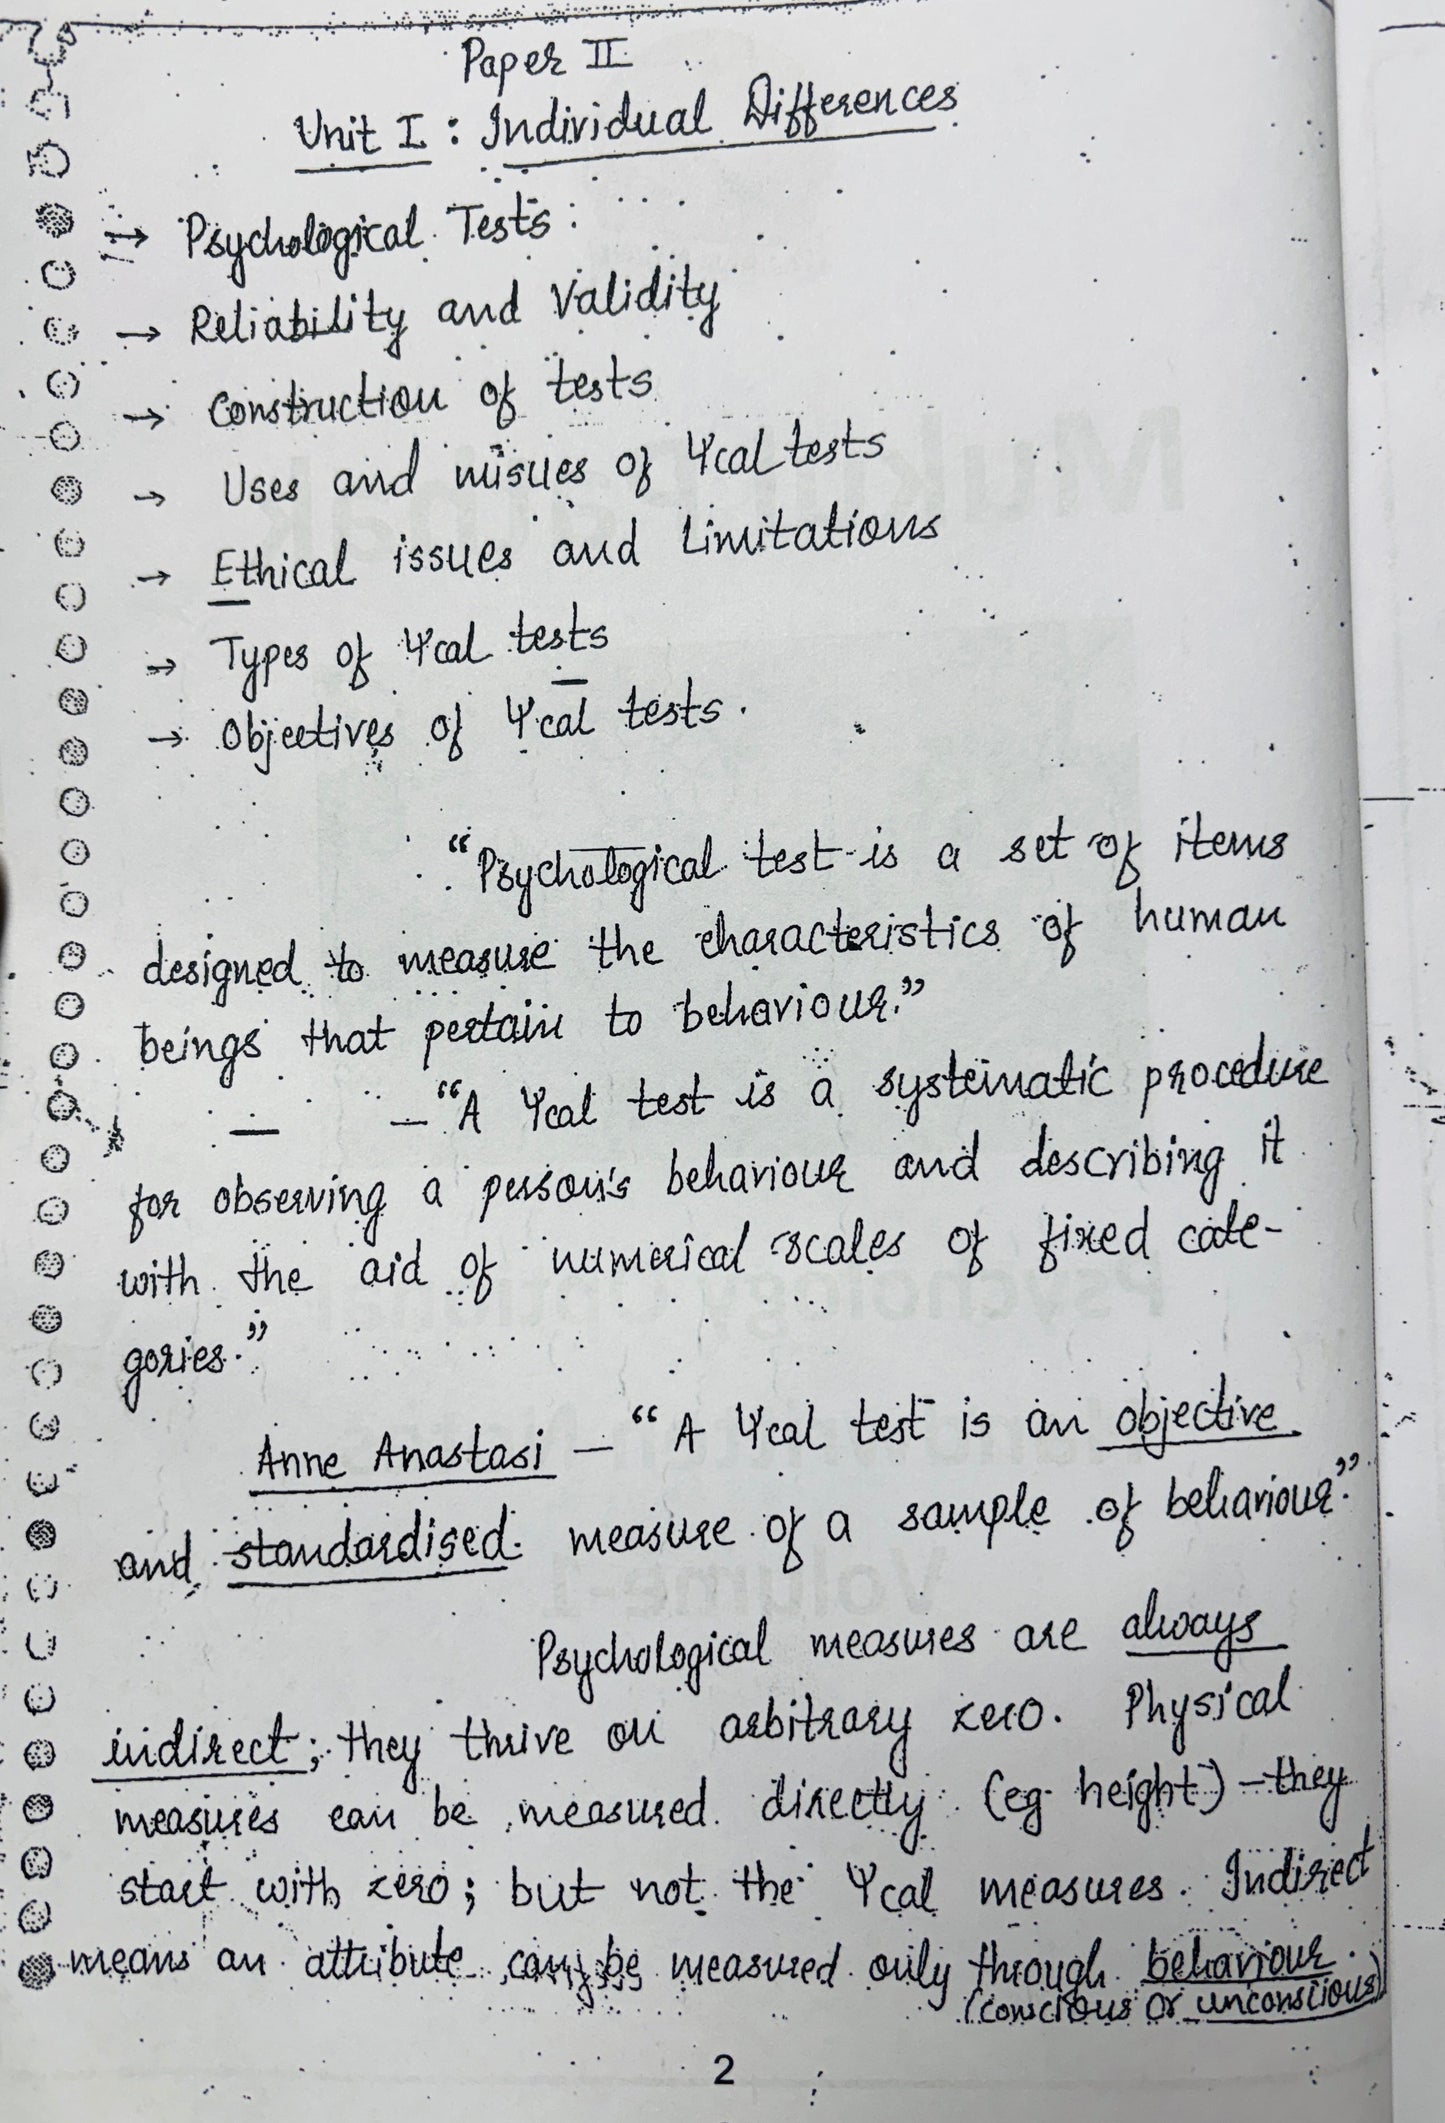 Paper II
Unit I : Individual Differences
→ Psychological Tests:
→ Reliability and Validity
→ Construction of tests
→ Uses and misues of Ψcal tests
→ Ethical issues and Limitations
→ Types of Ψcal tests
→ Objectives of Ψcal tests.
"Psychological test is a set of items
designed to measure the characteristics of human
beings that pertain to behaviour."
— "A Ψcal test is a systematic procedure
for observing a person's behaviour and describing it
with the aid of numerical scales of fixed cate-
gories."
Anne Anastasi — "A Ψcal test is an objective
and standardised measure of a sample of behaviour."
Psychological measures are always
indirect; they thrive on arbitrary zero. Physical
measures can be measured directly (eg. height) – they
start with zero; but not the Ψcal measures. Indirect
means an attribute can be measured only through behaviour.
(conscious or unconscious)
2